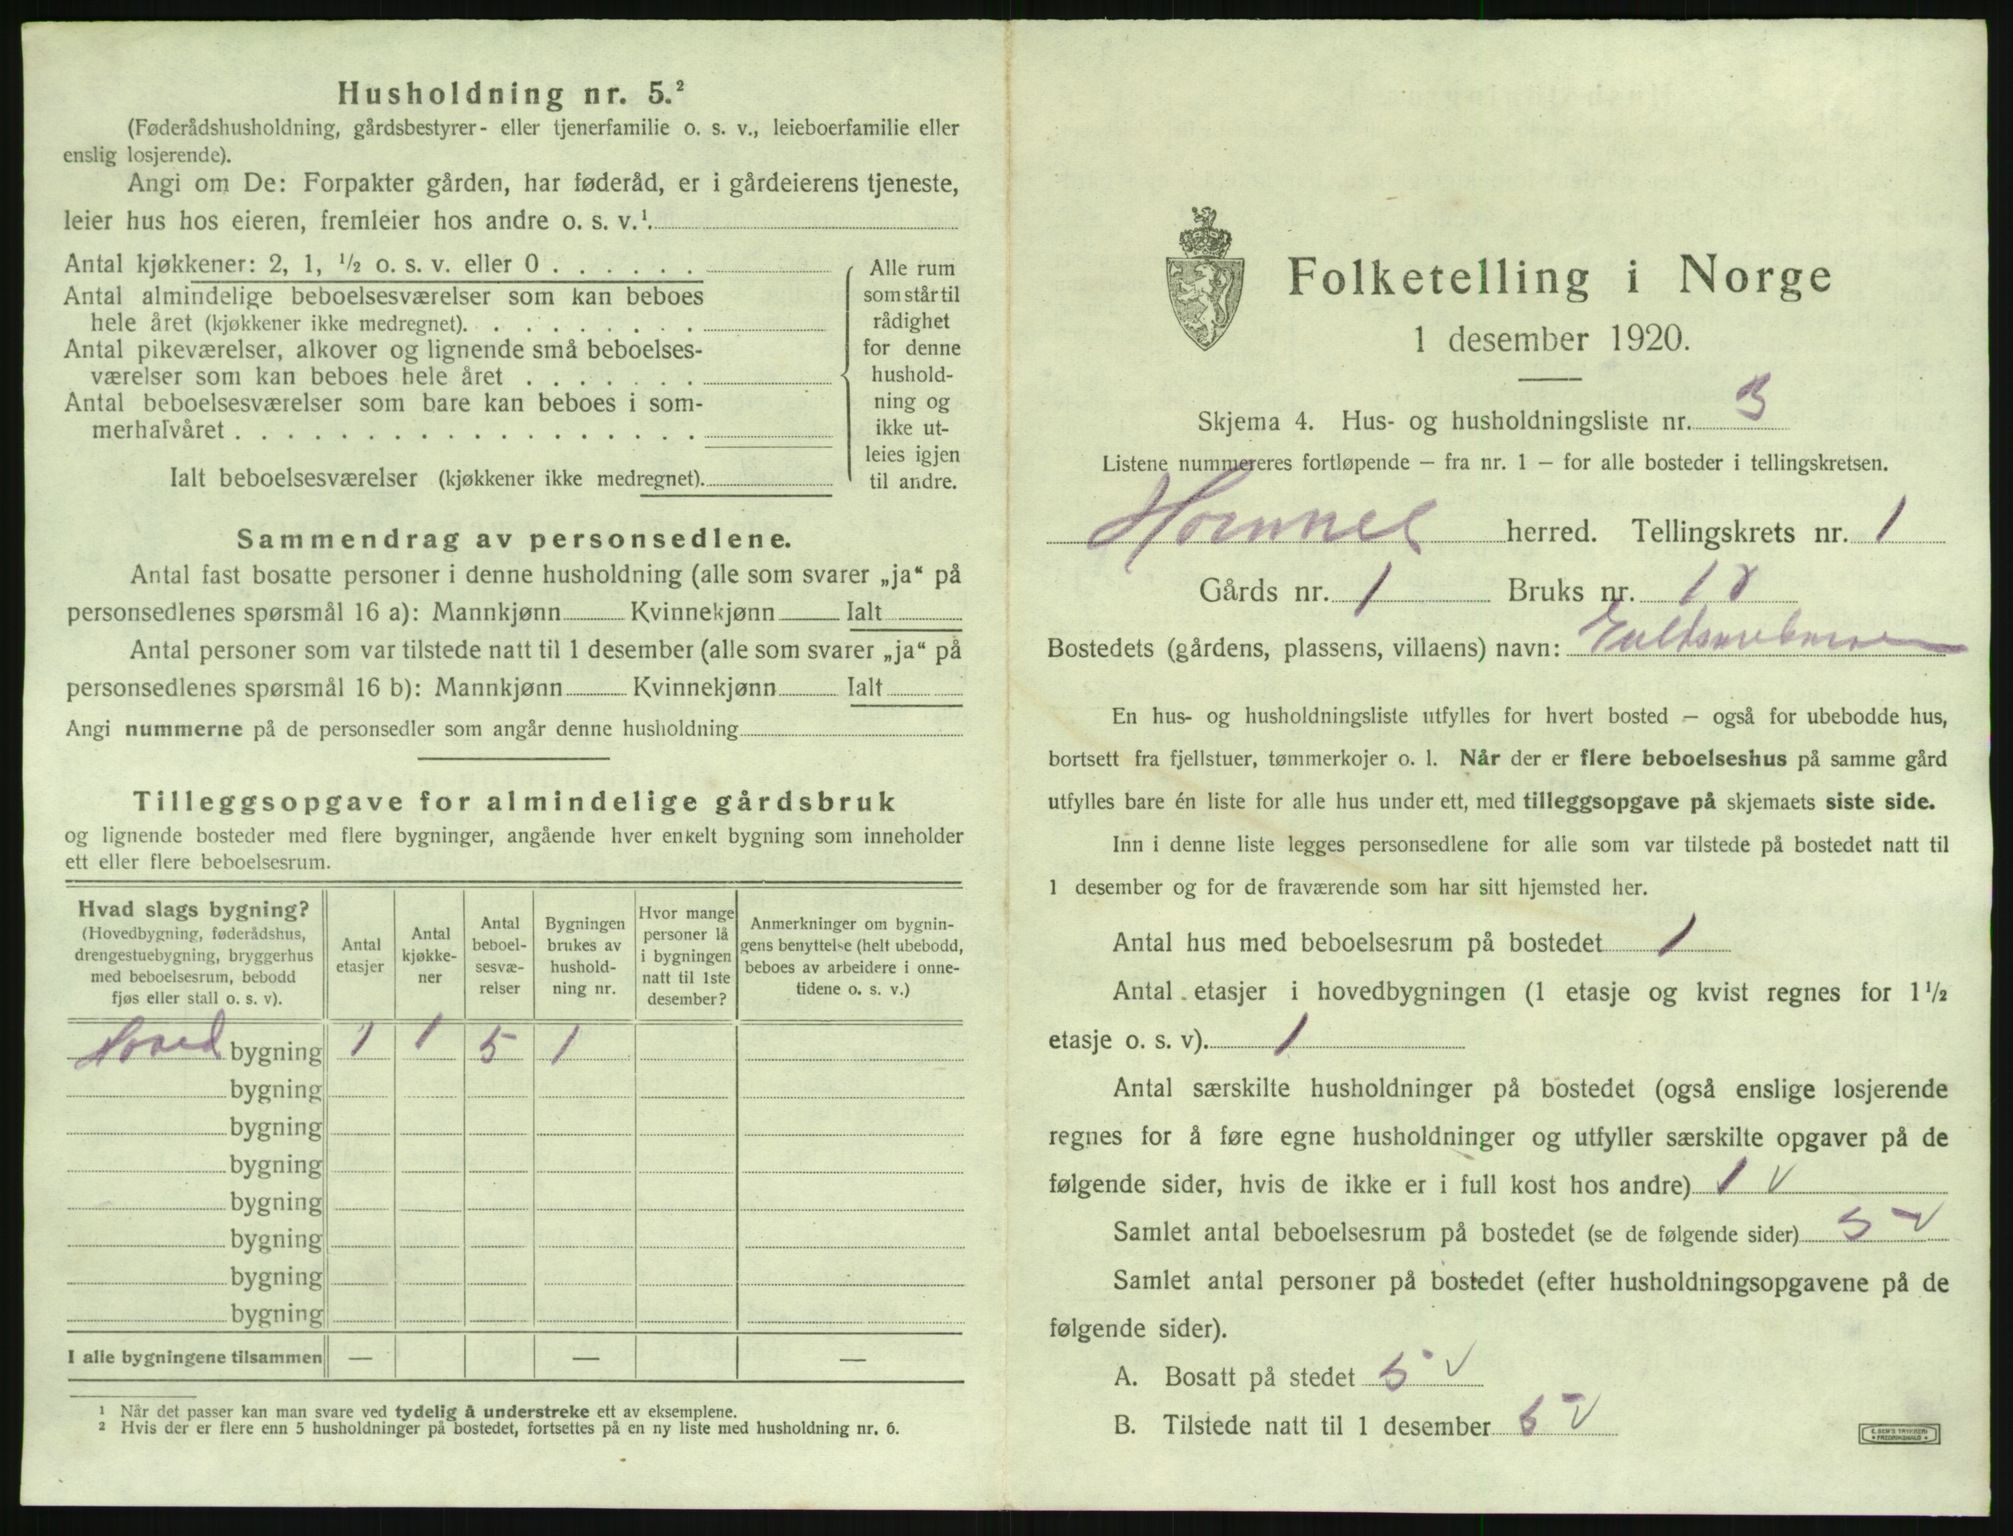 Husholdning nr. 5.²
(Føderådshusholdning, gårdsbestyrer- eller tjenerfamilie o. s. v., leieboerfamilie eller
enslig losjerende).
Angi om De: Forpakter gården, har føderåd, er i gårdeierens tjeneste,
leier hus hos eieren, fremleier hos andre o. s. v.¹.
Antal kjøkkener: 2, 1, ½ o. s. v. eller 0 . . . . . .
Antal almindelige beboelsesværelser som kan beboes
hele året (kjøkkener ikke medregnet). . . . . . . . .
Antal pikeværelser, alkover og lignende små beboelses-
værelser som kan beboes hele året . . . . . . .
Antal beboelsesværelser som bare kan beboes i som-
merhalvåret . . . . . . . . . . . . . . . . . .
Ialt beboelsesværelser (kjøkkener ikke medregnet).
Alle rum
som står til
rådighet
for denne
hushold-
ning og
ikke ut-
leies igjen
til andre.
Sammendrag av personsedlene.
Antal fast bosatte personer i denne husholdning (alle som svarer „ja“ på
personsedlenes spørsmål 16 a): Mannkjønn Kvinnekjønn Ialt
Antal personer som var tilstede natt til 1 desember (alle som svarer „ja“ på
personsedlenes spørsmål 16 b): Mannkjønn Kvinnekjønn Ialt
Angi nummerne på de personsedler som angår denne husholdning
Tilleggsopgave for almindelige gårdsbruk
og lignende bosteder med flere bygninger, angående hver enkelt bygning som inneholder
ett eller flere beboelsesrum.
Hvad slags bygning?
(Hovedbygning, føderådshus,
drengestuebygning, bryggerhus
med beboelsesrum, bebodd
fjøs eller stall o. s. v).
Antal
etasjer
Antal
kjøkke-
ner
Antal
beboel-
sesvæ-
relser
Bygningen
brukes av
hushold-
ning nr.
Hvor mange
personer lå
i bygningen
natt til 1ste
desember?
Anmerkninger om bygnin-
gens benyttelse (helt ubebodd,
beboes av arbeidere i onne-
tidene o. s. v.)
Hoved bygning 1 1 5 1
bygning
bygning
bygning
bygning
bygning
bygning
bygning
I alle bygningene tilsammen — — —
¹ Når det passer kan man svare ved tydelig å understreke ett av eksemplene.
² Hvis der er flere enn 5 husholdninger på bostedet, fortsettes på en ny liste med husholdning nr. 6.
Folketelling i Norge
1 desember 1920.
Skjema 4. Hus- og husholdningsliste nr. 3
Listene nummereres fortløpende – fra nr. 1 – for alle bosteder i tellingskretsen.
Hornnes herred. Tellingskrets nr. 1
Gårds nr. 1 Bruks nr. 18
Bostedets (gårdens, plassens, villaens) navn:
En hus- og husholdningsliste utfylles for hvert bosted – også for ubebodde hus,
bortsett fra fjellstuer, tømmerkojer o. l. Når der er flere beboelseshus på samme gård
utfylles bare én liste for alle hus under ett, med tilleggsopgave på skjemaets siste side.
Inn i denne liste legges personsedlene for alle som var tilstede på bostedet natt til
1 desember og for de fraværende som har sitt hjemsted her.
Antal hus med beboelsesrum på bostedet 1
Antal etasjer i hovedbygningen (1 etasje og kvist regnes for 1½
etasje o. s. v). 1
Antal særskilte husholdninger på bostedet (også enslige losjerende
regnes for å føre egne husholdninger og utfyller særskilte opgaver på de
følgende sider, hvis de ikke er i full kost hos andre) 1 v
Samlet antal beboelsesrum på bostedet (se de følgende sider) 5 v
Samlet antal personer på bostedet (efter husholdningsopgavene på de
følgende sider).
A. Bosatt på stedet 5 v
B. Tilstede natt til 1 desember 5 v
E. SEM'S TRYKKERI
FREDRIKSHALD